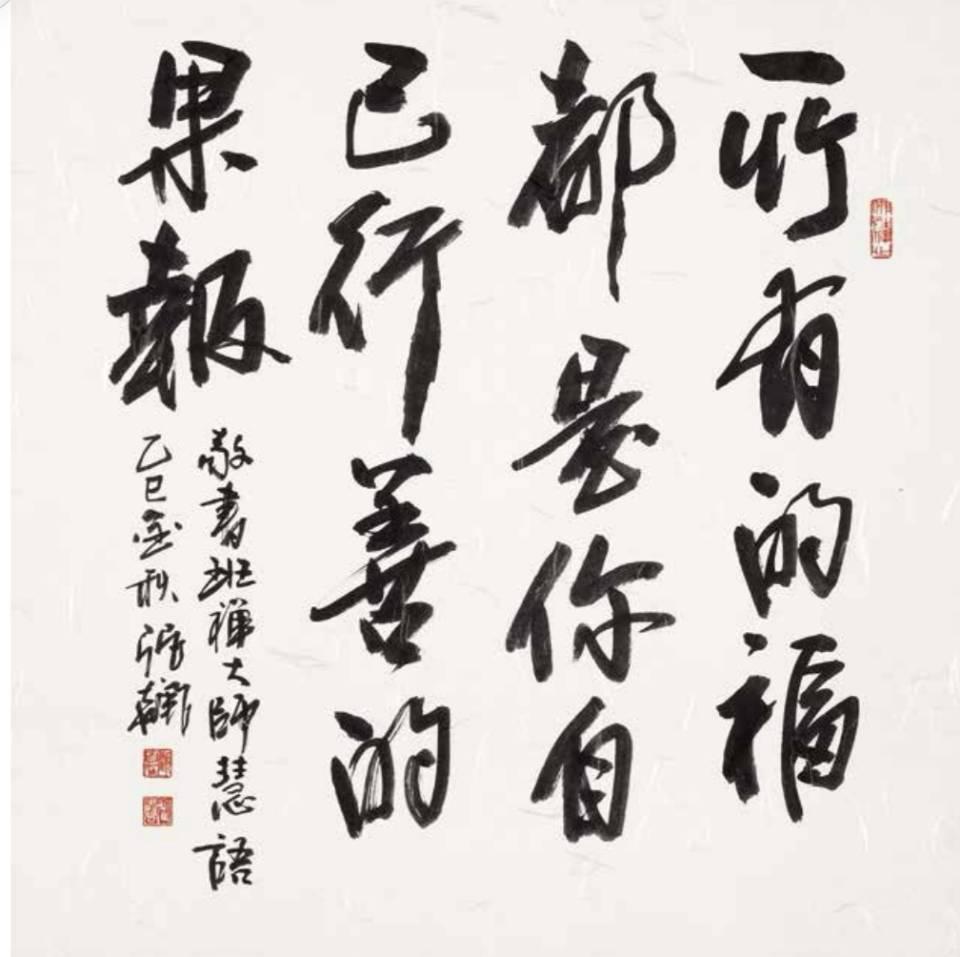 所有的福
都是你自
己行善的
果報
敬書班禪大師慧語
乙巳金秋張繼